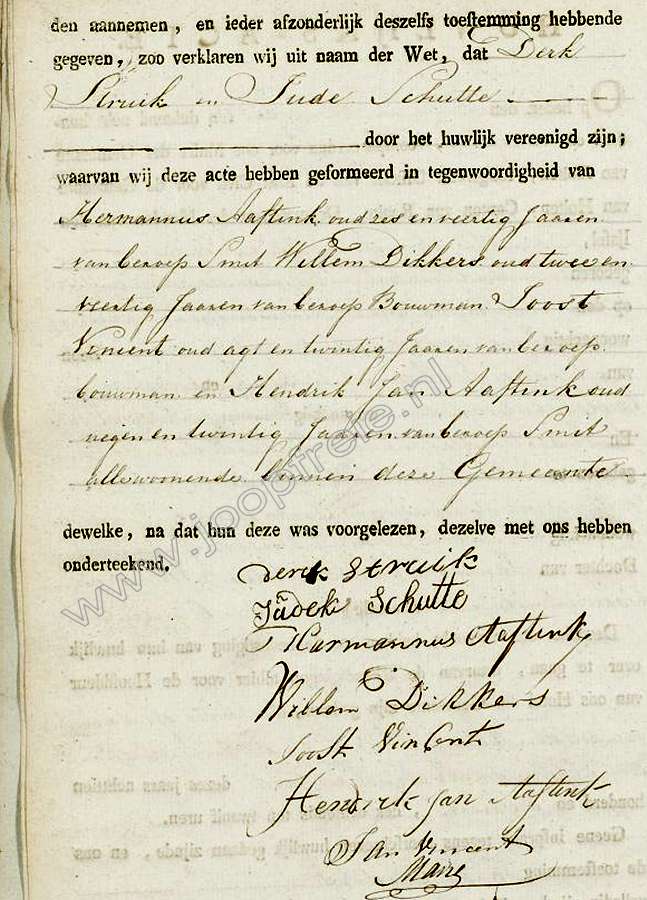 den aannemen, en ieder afzonderlijk deszelfs toestemming hebbende
gegeven, zoo verklaren wij uit naam der Wet, dat Derk
Struik en Jude Schutte
door het huwlijk vereenigd zijn;
waarvan wij deze acte hebben geformeerd in tegenwoordigheid van
Hermannus Aaftink oud zes en veertig Jaaren
van beroep Smit Willem Dikkers oud twee en
veertig Jaaren van beroep Bouwman Joost
Vincent oud agt en twintig Jaaren van beroep
bouwman en Hendrik Jan Aaftink oud
negen en twintig Jaaren van beroep Smit
alle woonende binnen deze Gemeente
dewelke, na dat hun deze was voorgelezen, dezelve met ons hebben
onderteekend.
Derk Struik
Judek Schutte
Harmannus Aaftink
Willem Dikkers
Joost Vincent
Hendrik Jan Aaftink
Jan Vincent
Maire
www.jooptrele.nl